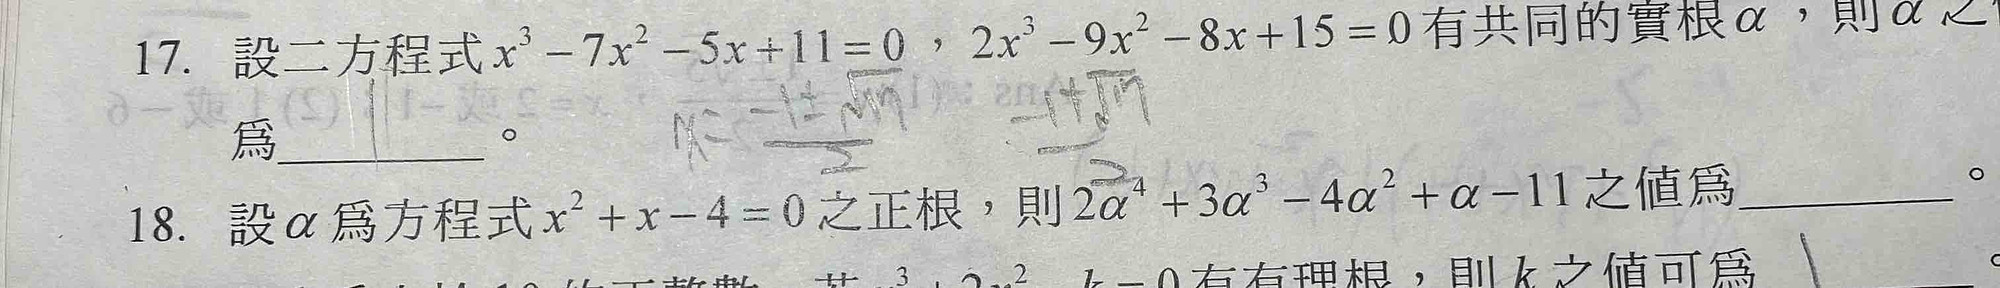 17. 設二方程式 x³ − 7x² − 5x + 11 = 0，2x³ − 9x² − 8x + 15 = 0 有共同的實根 α，則 α 之
為______。
x = (−1 ± √17)/2  (−1 + √17)/2
18. 設 α 為方程式 x² + x − 4 = 0 之正根，則 2α⁴ + 3α³ − 4α² + α − 11 之值為______。
k = 0 有有理根，則 k 之值可為